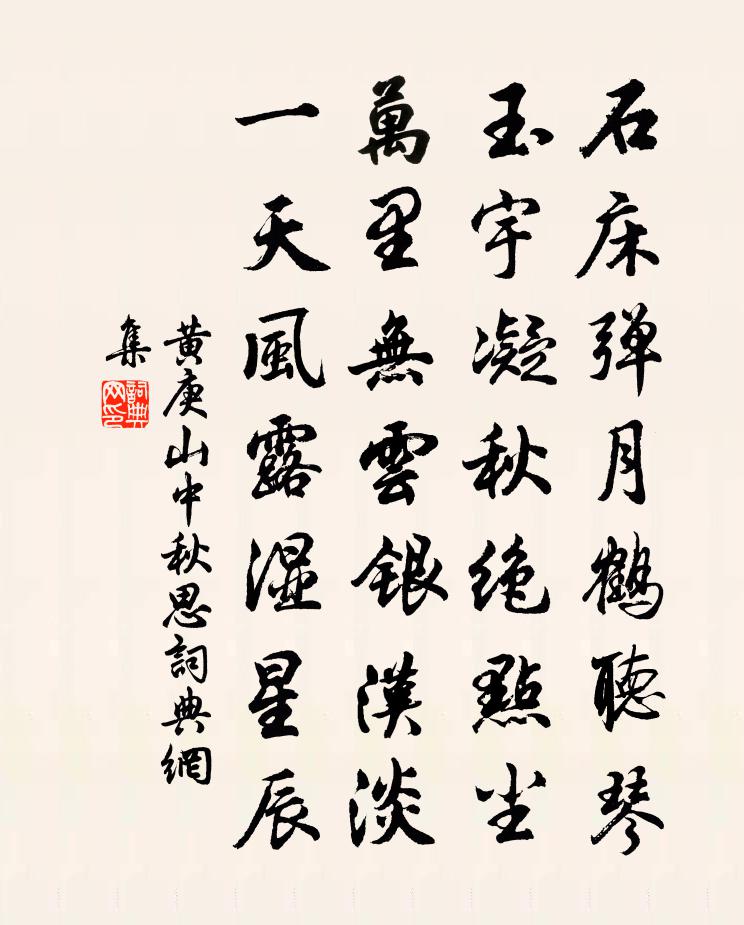 石床弹月鶴聽琴
玉宇凝秋絶點尘
萬里無雲銀漢淡
一天風露濕星辰
黄庚山中秋思詞典網
集
詞典網印